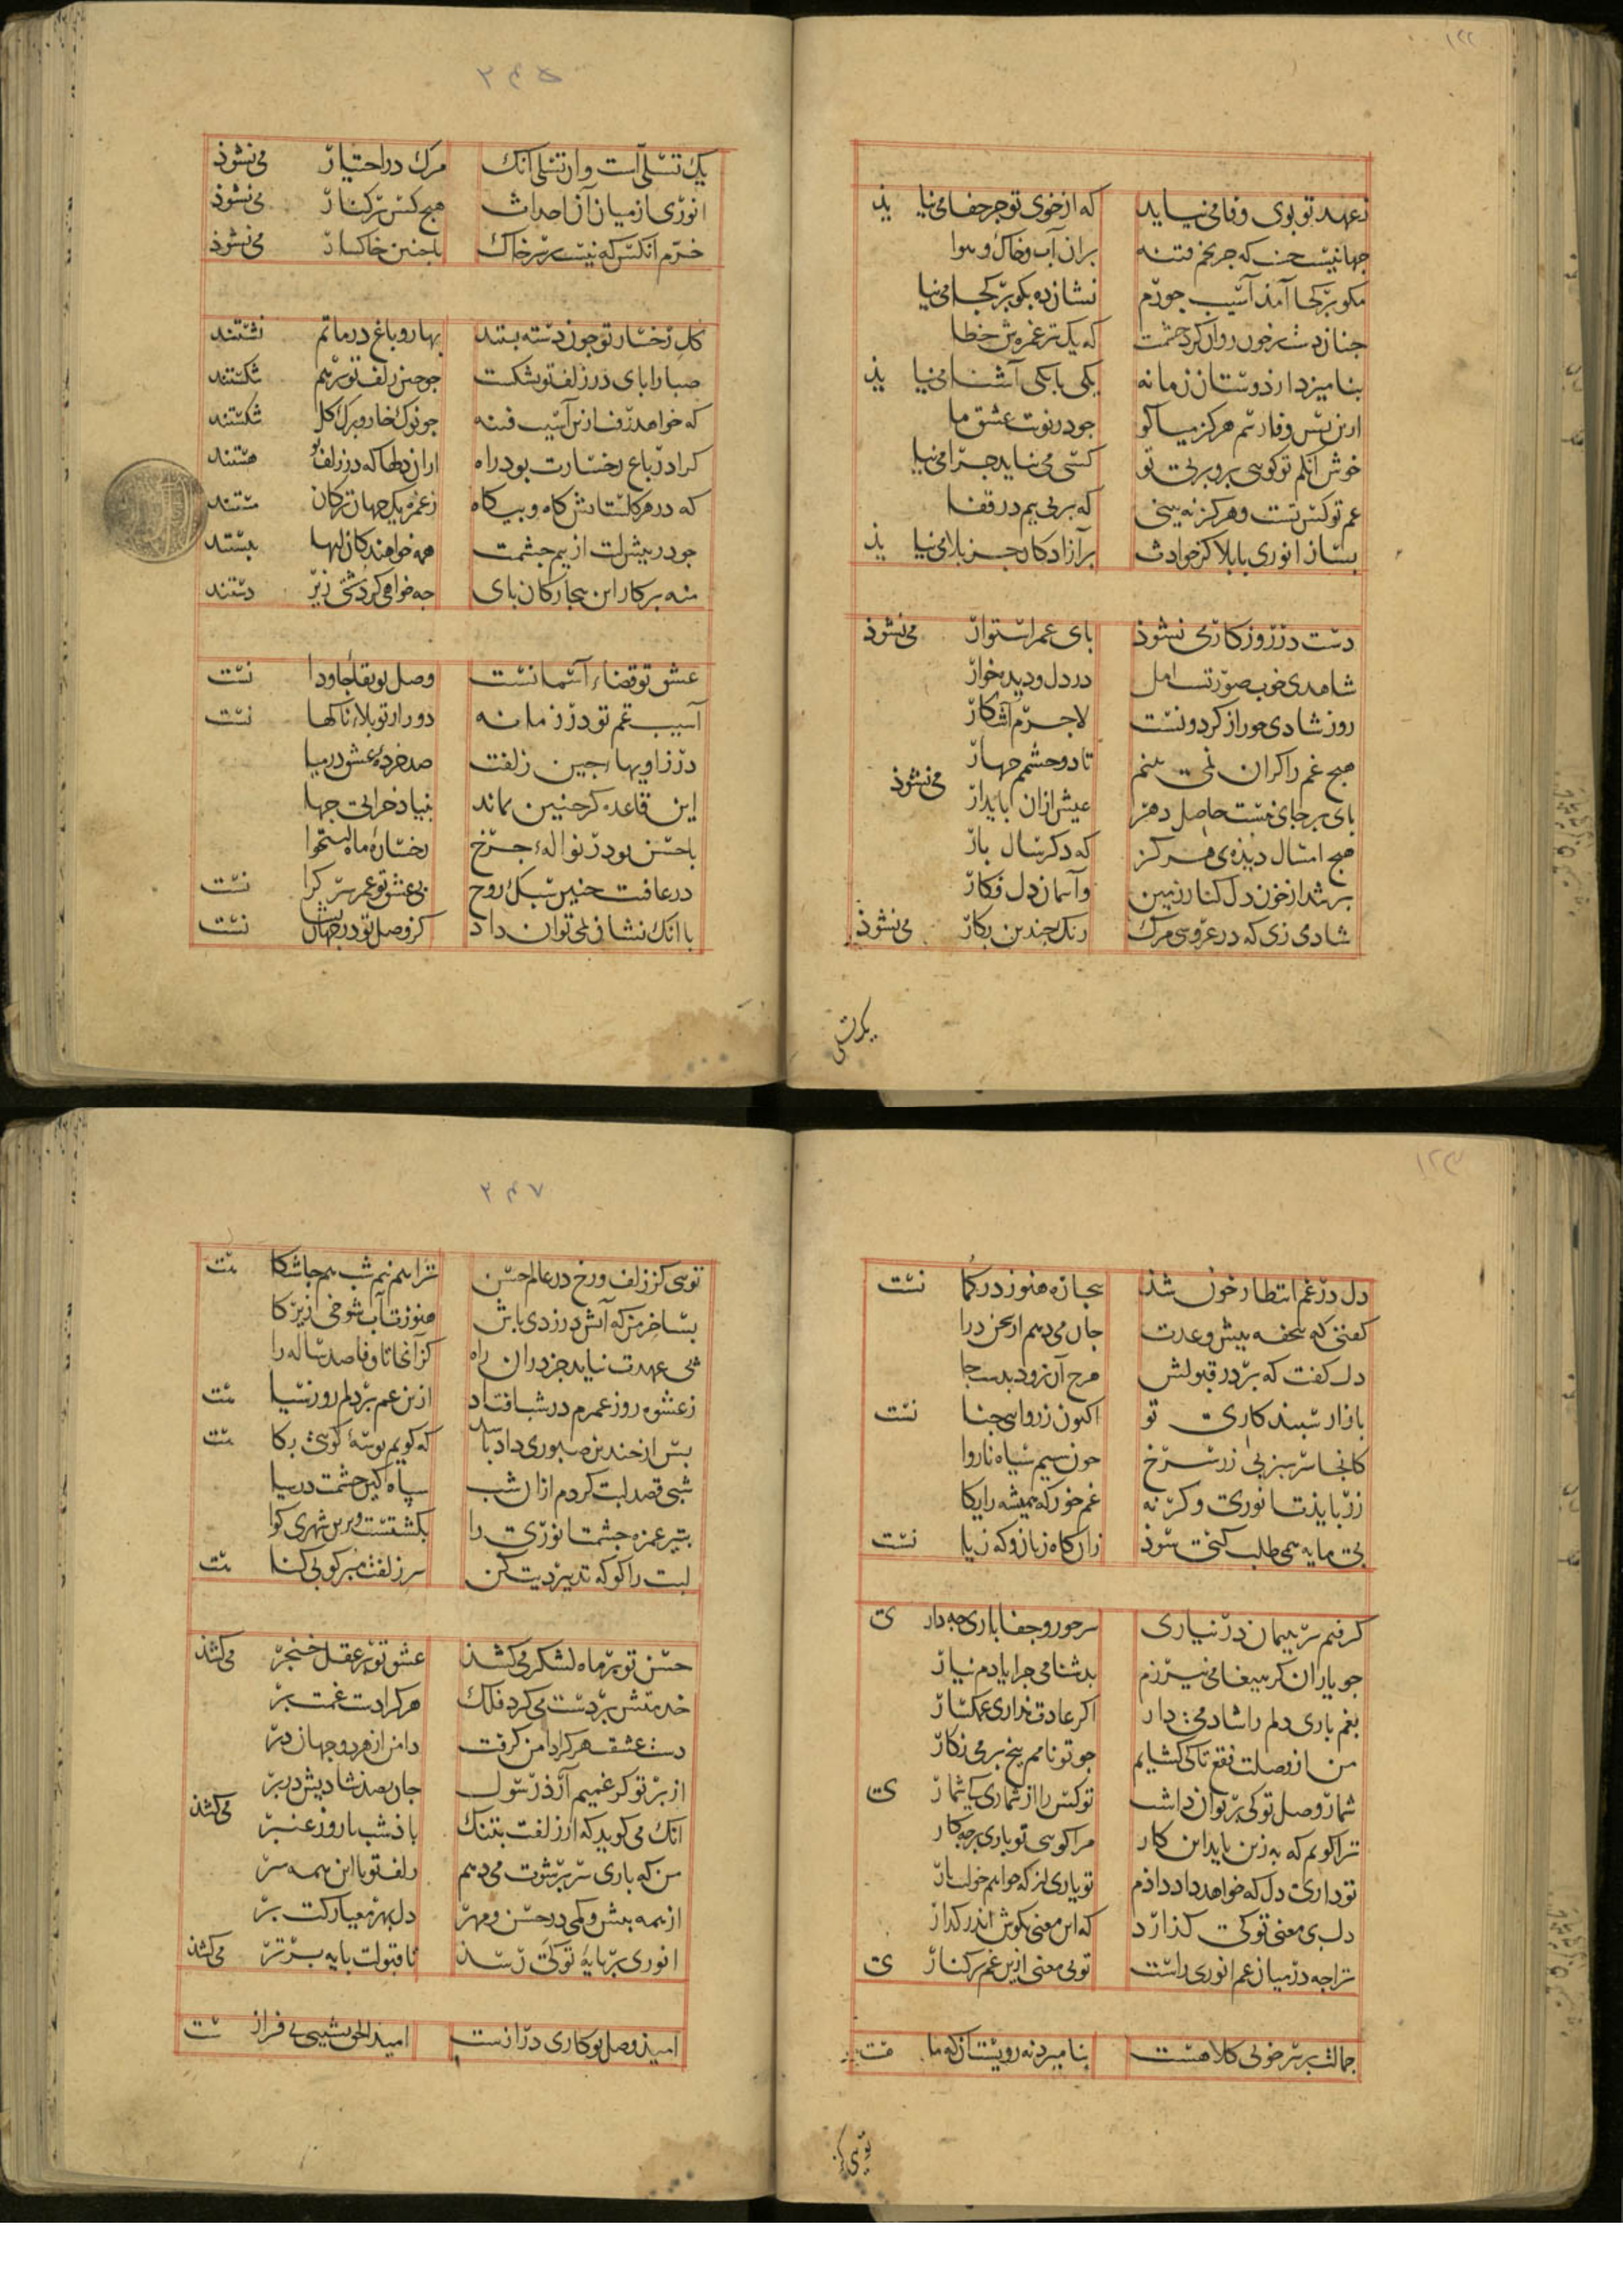 ۱۲۲
ز عهد تو بوی وفا می نیاید که از خوی تو جز جفا می نیا یذ
جهانیست حسنت که جز تخم فتنه بران آب وخاک و هوا
مکو بر کجا آمذ آسیب جورم نشان ده بکو بر کجا می نیا
چنان دست بر خون روان کرد چشمت که یک تیر غمزه ش خطا
بنامیزد از دوستان زمانه یکی با یکی آشنا می نیا یذ
ازین بس وفا رسم هرکز میاکو جو در نوبت عشق ما
خوش آنکم تو کویی برو بر پی تو کسی می نیاید جرا می نیا
غم تو کس تست و هرکز نه بینی که بر پی بیم در قفا
بساز انوری با بلا کز حوادث بر آزادکان جز بلا می نیا یذ
دست در روزکار می نشوذ بای عمر استوار می نشوذ
شاهدی خوب صورتست امل در دل و دیده خوار
روز شادی جو راز کردونست لاجرم آشکار
هیچ غم را کران نمی بینم تا دو چشمم جهار می نشوذ
بای بر جای نیست حاصل دهر عیش ازان بایدار
هیچ امسال دیذه ی هرکز که دکر سال بار
بر شد از خون دل کنار زمین و آسمان دل فکار
شادی زی که در عروسی مرک رنک جندین بکار می نشوذ
یک تسلی
۲۴۵
یک تسلی است وان تسلی آنک مرک در اختیار می نشوذ
انوری از میان آن احداث هیچ کس بر کنار می نشوذ
خرم انکس که نیست بر سر خاک باجنین خاکسار می نشوذ
کل رخسار تو جون دسته بستند بهار و باغ در ماتم نشستند
صبا را بای در زلف تو بشکست جو جین زلف تو بر هم شکستند
که خواهد رفت ازین آسیب فتنه جو نوک خار و برک کل شکستند
کرا در باغ رخسارت بود راه ازان دلها که در زلف تو هستند
که در هر کلستانش کاه و بیکاه ز غمزه یک جهان ترکان مستند
جو در بیش لبت از بیم جشمت همه خواهندکان لبها ببستند
منه بر کار این بیجارکان بای جه خواهی کرد مشتی زیر دستند
عشق تو قضاء آسمانست وصل تو بقاء جاودا نست
آسیب غم تو در زمانه دور از تو بلاء ناکها نست
در زاویهاء جین زلفت صد خرده عشق در میا
این قاعده کر جنین بماند بنیاد خرابی جها
با حسن تو در نوالهٔ جرخ رخساره ماه استخوا
در عافیت جنین سبک روح بی عشق تو عمر سر کرا نست
با انک نشان نمی توان داد کز وصل تو در جهان نست
۱۲۳
دل در غم انتظار خون شذ بیجاره هنوز در کما نست
کفتم که تحفه بیش وعدت جان می دهم ار سخن درا
دل کفت که بر در قبولش مرح آن نرود بدست جا
بازار سبید کاری تو اکنون ز روایی جنا نست
کانجا سر سبز بی زر سرخ جون سیم سیاه ناروا
زر بایذت انوری وکر نه غم خور که همیشه رایکا
بی مایه همی طلب کنی سوذ زان کاه زبان و که زیا نست
کرفتم سر بیمان در نیاری سر جور و جفا باری جه دار ی
جو یاران کر ببیغامی نیرزم بدشنامی جرا یادم نیار
بغم باری دلم را شاد می دار اکر عادت نداری غمکسار
من از وصلت فقع تا کی کشایم جو تو نامم بیخ بر می نکار
شمار وصل تو کی بر توان داشت تو کس را از شماری کی شمار ی
ترا کویم که به زین باید این کار مرا کویی تو باری بر جه کار
تو داری دل که خواهد داد دادم تو یاری از که خواهم خواست یار
دل بی معنی تو کی کذارد که این معنی بکوش اندر کذار
ترا جه در میان غم انوری راست تو بی معنی ازین غم بر کنار ی
جمالت بر سر خوبی کلاهست بنامیزد نه رویست آن که ما هست
تویی کز
۲۴۷
تویی کز زلف و رخ در عالم حسن ترا هم نیم شب هم جاشتکا هست
بسا خرمن که آتش در زدی باش هنوزت آب شوخی زیر کا
بی عهدت نیاید جز دران راه کز آنجا تا وفا صد ساله را
ز عشوه روز عمرم در شب افتاد ازین غم بر دلم روز سیا هست
بس از جندین صبوری داد باشد که کویم بوسهٔ کویی بکا هست
شبی قصد لبت کردم ازان شب سپاه کین جشمت در سیا
بتیر غمزه جشمت انوری را بکشتست و برین شهری کوا
لبت را کو که تدبیر دیت کن سر زلفت مبر کو بی کنا هست
حسن تو بر ماه لشکر می کشذ عشق تو بر عقل خنجر می کشذ
خدمتش بر دست می کرد فلک هر کرا دست غمت بر
دست عشقت هر کرا دامن کرفت دامن از هر دو جهان در
از بر تو کر غمیم آرذ رسول جان بصد شادیش در بر می کشذ
انک می کوید که از زلفت بتنک باذ شب با روز عنبر
من که باری سر بر شوت می دهم زلف تو با این همه سر
از همه بیش و کمی در حسن و مهر دل بهر معیار کت بر
انوری بر بایهٔ تو کی رسذ تا قبولت بایه برتر می کشذ
امیذ وصل تو کاری درازست امیذ الحق نشیبی بی فراز ست